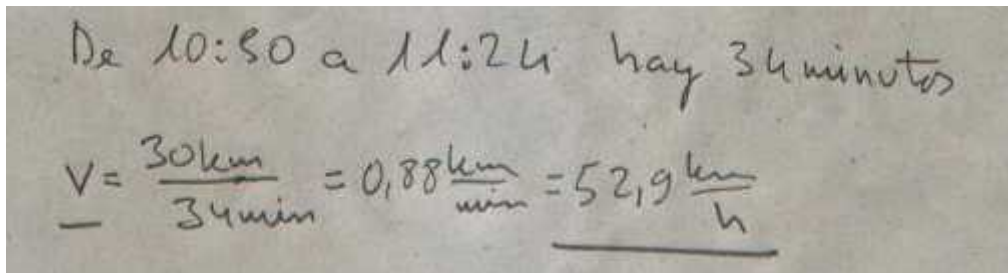 De 10:50 a 11:24 hay 34 minutos
V = 30km / 34min = 0,88 km/min = 52,9 km/h